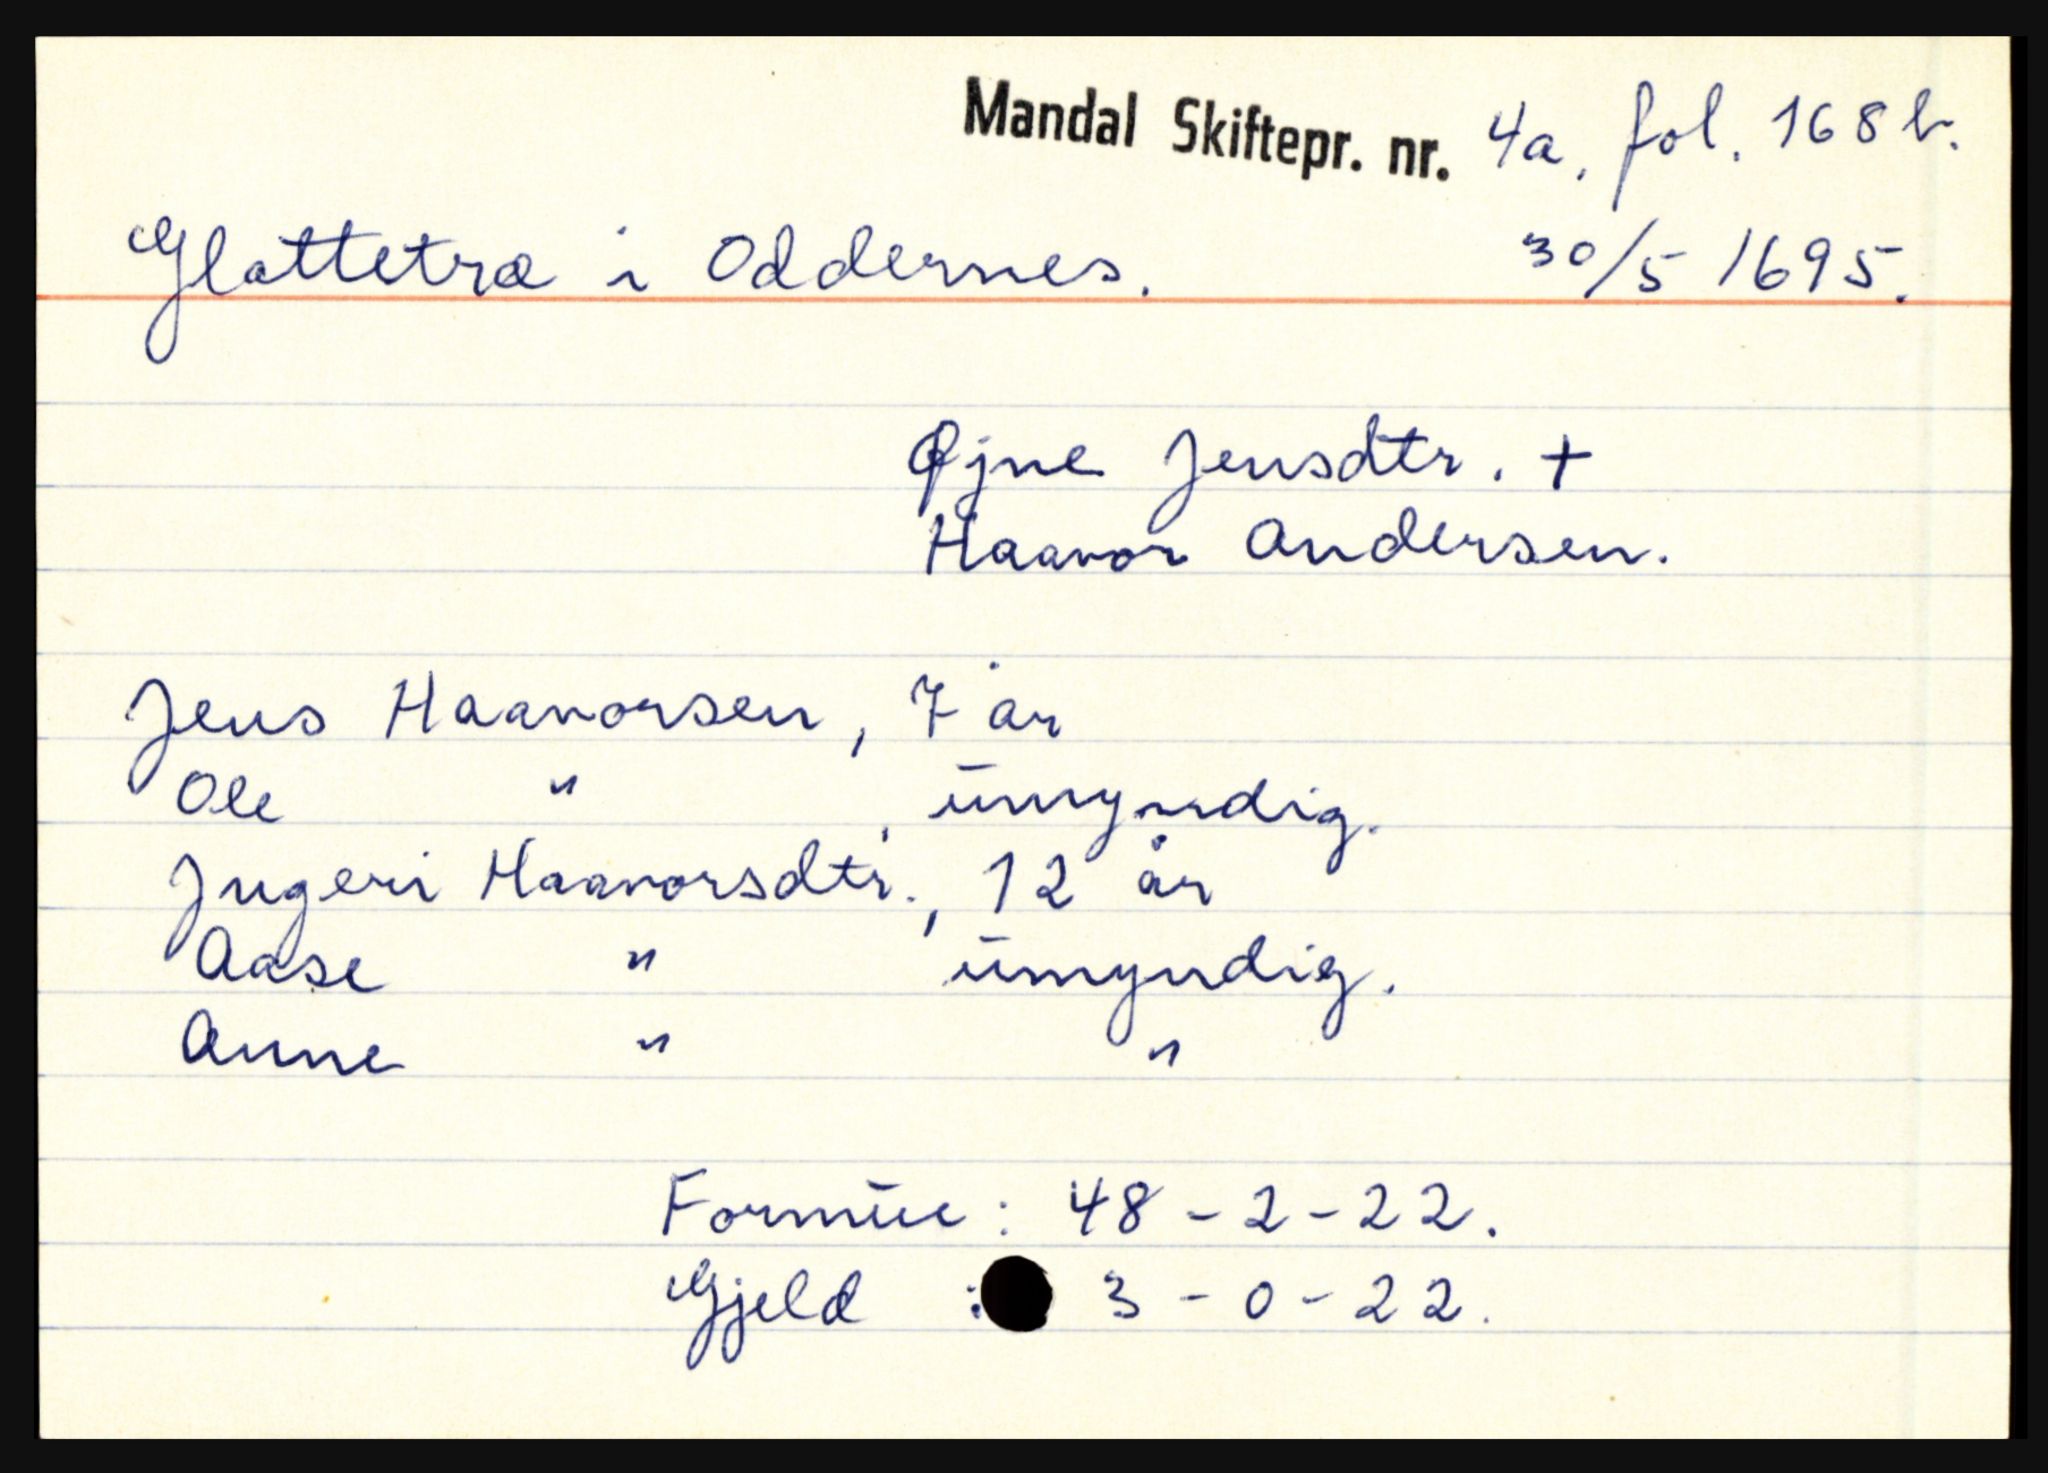 Mandal Skiftepr. nr. 4a, fol. 168 b.
Glattetræ i Oddernes. 30/5 1695.
Øjne Jensdtr. +
Haavor Andersen.
Jens Haavorsen, 7 år
Ole " , umyndig.
Ingeri Haavorsdtr., 12 år
Aase " umyndig.
Anne " "
Formue: 48 - 2 - 22.
Gjeld : 3 - 0 - 22.